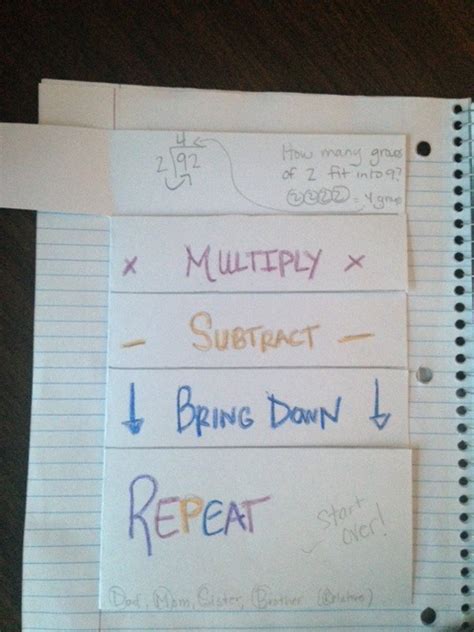 4
2 92
How many groups
of 2 fit into 9?
2 2 2 2 = 4 group
x MULTIPLY x
- SUBTRACT -
↓ BRING DOWN ↓
REPEAT
Start
over!
Dad, Mom, Sister, Brother (Relatives)